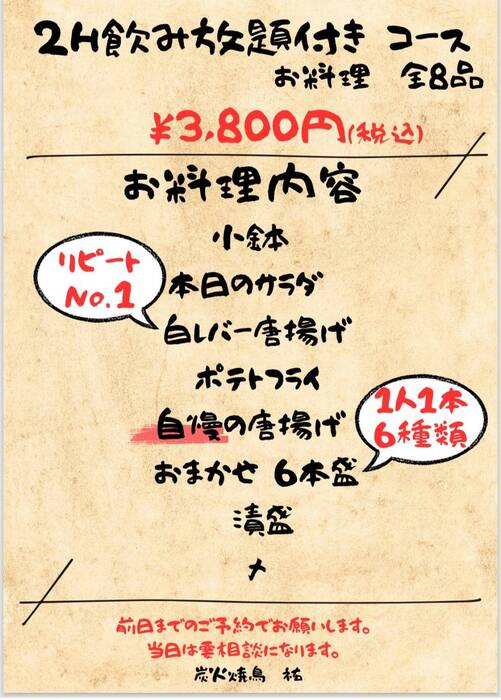 2H飲み放題付き コース
お料理 全8品
¥3,800円(税込)
お料理内容
小鉢
リピート
No.1
本日のサラダ
白レバー唐揚げ
ポテトフライ
自慢の唐揚げ
1人1本
6種類
おまかせ 6本盛
漬盛
〆
前日までのご予約でお願いします。
当日は要相談になります。
炭火焼鳥 祐